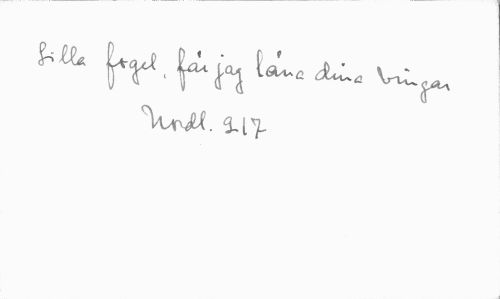 Lilla fogel, får jag låna dina vingar
Nordl. 217